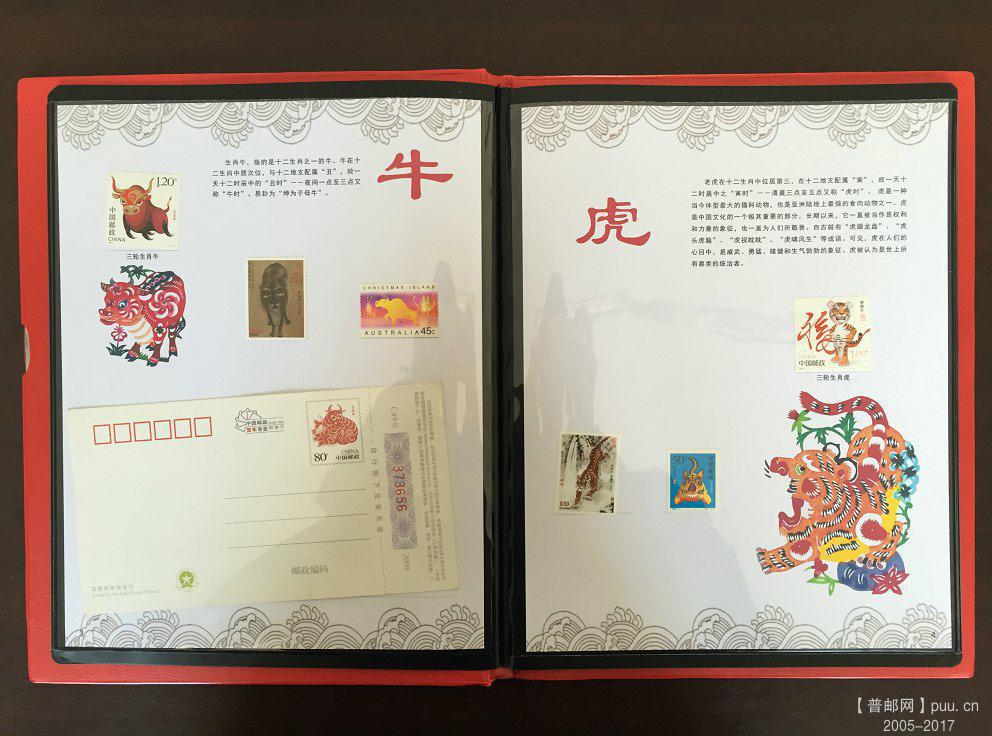 牛
生肖牛，指的是十二生肖之一的牛。牛在十
二生肖中居次位，与十二地支配属“丑”，故一
天十二时辰中的“丑时”——夜间一点至三点又
称“牛时”。易卦为“坤为子母牛”。
1.20元
中国邮政
CHINA
三轮生肖牛
CHRISTMAS ISLAND
AUSTRALIA 45c
中国邮政
贺年有奖
80分
CHINA
中国邮政
自行剪下兑奖无效
C49组
373656
2009
邮政编码
国家邮政局发行
Issued by the State Postal Bureau
3
虎
老虎在十二生肖中位居第三，在十二地支配属“寅”，故一天十
二时辰中之“寅时”——清晨三点至五点又称“虎时”。虎是一种
当今体型最大的猫科动物，也是亚洲陆地上最强的食肉动物之一。虎
是中国文化的一个极其重要的部分，长期以来，它一直被当作是权利
和力量的象征，也一直为人们所敬畏。自古就有“虎踞龙盘”、“虎
头虎脑”、“虎视眈眈”、“虎啸风生”等成语。可见，虎在人们的
心目中，是威武、勇猛、雄健和生气勃勃的象征。虎被认为是世上所
有兽类的统治者。
CHINA
中国邮政
1.20元
三轮生肖虎
$50
50分
中国邮政
4
【普邮网】puu.cn
2005-2017